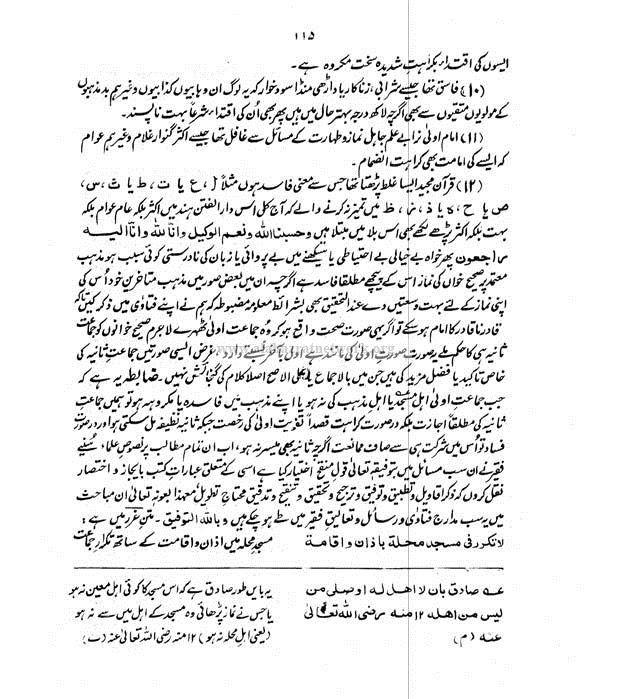 ۱۱۵
ایسوں کی اقتداء بکراہتِ شدیدہ سخت مکروہ ہے۔
(۱۰) فاسق تھا جیسے شرابی، زناکار یا داڑھی منڈا سود خوار کہ یہ لوگ ان وہابیوں کذابیوں وغیرہم بدمذہبوں
کے مولویوں متقیوں سے بھی اگرچہ لاکھ درجہ بہتر حال میں ہیں پھر بھی اُن کی اقتداء شرعاً بہت ناپسند۔
(۱۱) امام اولیٰ نرا بے علم جاہل نماز و طہارت کے مسائل سے غافل تھا جیسے اکثر گنوار غلام وغیرہم عوام
کہ ایسے کی امامت بھی کراہت انضمام۔
(۱۲) قرآن مجید ایسا غلط پڑھتا تھا جس سے معنی فاسد ہوں مثلاً أ، ع یا ت، ط یا ث، س،
ص یا ح، ہ یا ذ، ز، ظ میں تمیز نہ کرنے والے کہ آج کل اس دار الفتن ہند میں اکثر بلکہ عام عوام بلکہ
بہت بلکہ اکثر پڑھے لکھے بھی اس بلا میں مبتلا ہیں وحسبنا اللہ ونعم الوکیل وانا للہ وانا الیہ
راجعون پھر خواہ بے خیالی بے احتیاطی یا سیکھنے میں بے پروائی یا زبان کی نادرستی کوئی سبب ہو مذہب
معتمد پر صحیح خواں کی نماز اس کے پیچھے مطلقا فاسد ہے اگرچہ ان میں بعض صور میں مذہب متاخرین خود اُس کی
اپنی نماز کے لئے بہت وسعتیں دے عند التحقیق بھی بشرائط معلومہ مضبوطہ کہ ہم نے اپنے فتاوٰی میں ذکر کیں تا کہ
قادر نا قادر کا امام ہوسکے تو اگر یہی صورت صحت واقع ہو کر وہ جماعت اولیٰ ٹھہرے لاجرم صحیح خوانوں کو جماعت
ثانیہ ہی کا حکم ملے
خاص تاکید یا فضل مزید کی ہیں جن میں بالاجماع یا علی الاصح اصلا کلام کی گنجائش نہیں۔ ضابطہ یہ ہے کہ
جب جماعتِ اولیٰ اہل مسجد یا اہل مذہب کی نہ ہو یا اپنے مذہب میں فاسدہ یا مکروہہ ہو تو ہمیں جماعتِ
ثانیہ کی مطلقاً اجازت بلکہ درصورت کراہت قصداً تفویتِ اولیٰ کی رخصت جبکہ ثانیہ نظیفہ مل سکتی ہو اور درصورتِ
فساد تو اُس میں شرکت ہی سے صاف ممانعت اگرچہ ثانیہ بھی میسر نہ ہو، اب ان تمام مطالب پر نصوص علماء سُنیے
فقیر نے ان سب مسائل میں بتوفیقہ تعالیٰ قول منقح اختیار کیا ہے اسی کے متعلق عباراتِ کتب بایجاز و اختصار
نقل کروں کہ ذکر اقاویل و تطبیق و توفیق و ترجیح و تحقیق و تنقیح و تدقیق محتاجِ تطویل، معہذا بعونہ تعالیٰ ان مباحث
میں یہ سب مدارج فتاوٰی و رسائل و تعالیق فقیر میں طے ہوچکے ہیں و باللہ التوفیق۔ متن غرر میں ہے:
لا تکرر فی مسجد محلۃ باذان واقامۃ مسجد محلہ میں اذان و اقامت کے ساتھ تکرارِ جماعت
عہ صادق بان لا اھل لہ او صلی من
لیس من اھلہ ۱۲ منہ رضی اللہ تعالیٰ
عنہ (م)
یہ بایں طور صادق ہے کہ اس مسجد کا کوئی اہل معین نہ ہو
یا جس نے نماز پڑھائی وہ مسجد کے اہل میں سے نہ ہو
(یعنی اہل محلہ نہ ہو) ۱۲ منہ رضی اللہ تعالیٰ عنہ (ت)